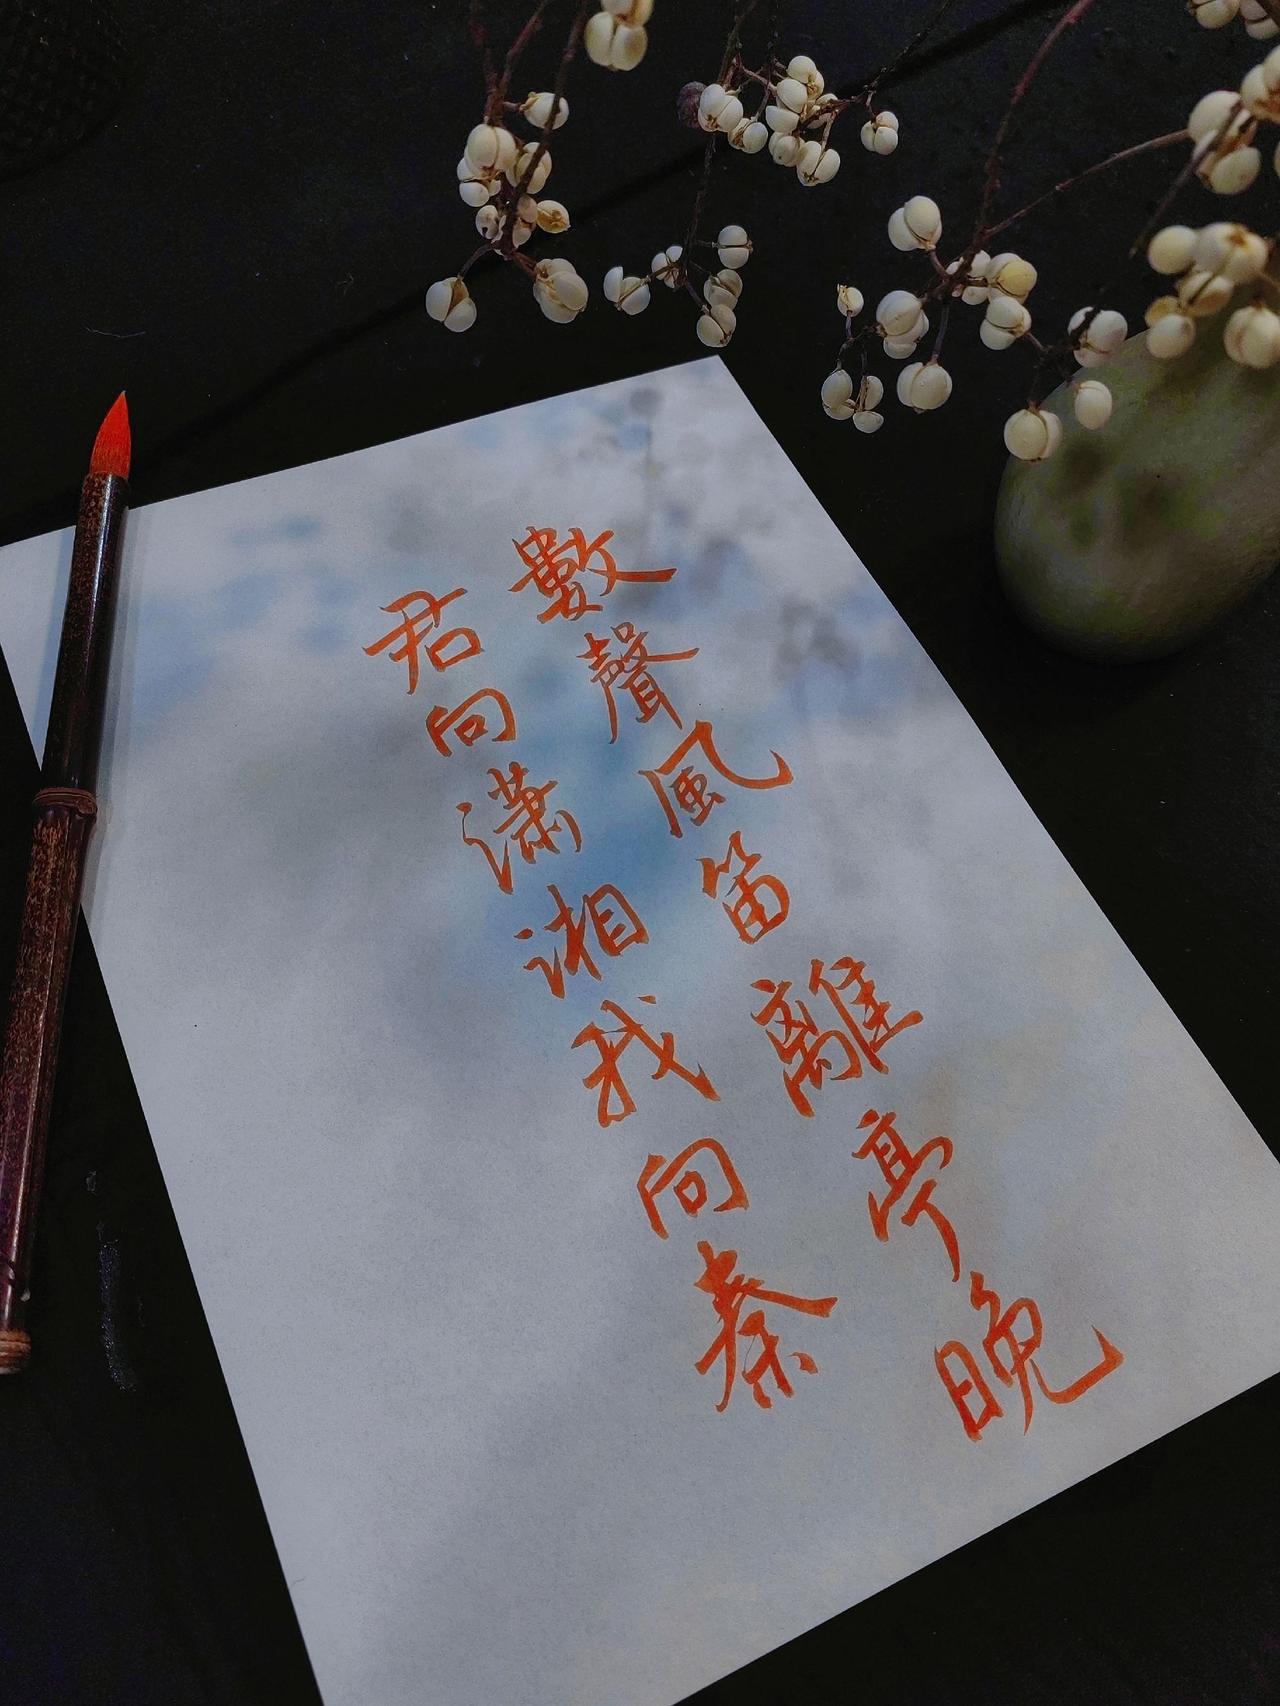 數聲風笛離亭晚
君向瀟湘我向秦